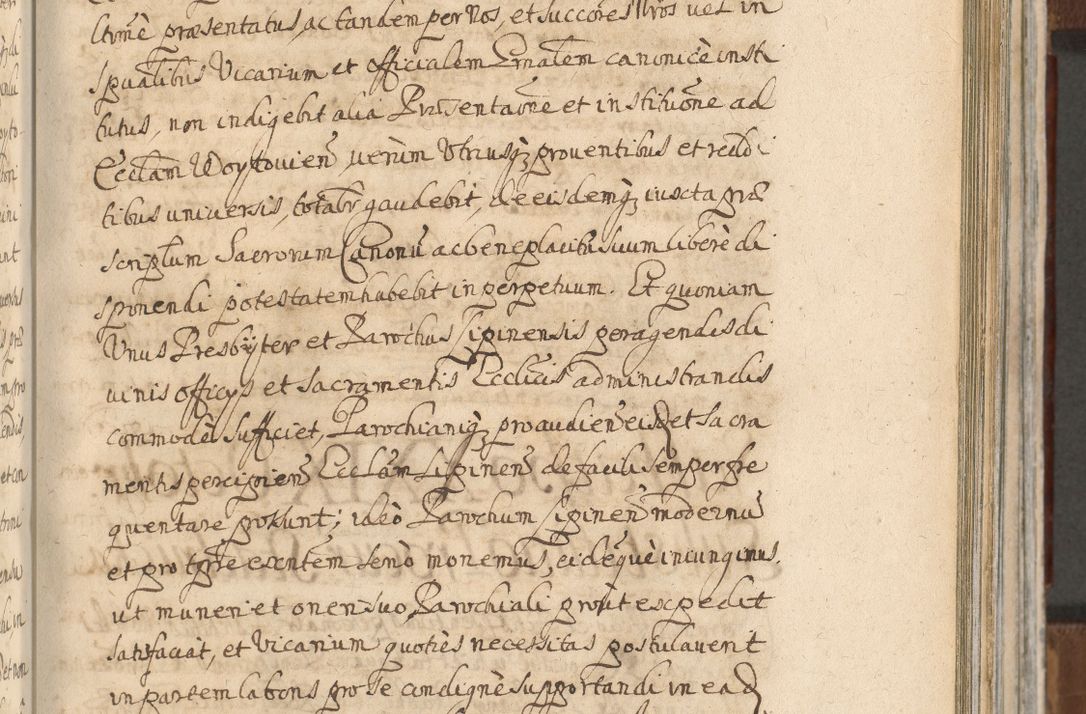 ltimè præsentatus, ac tandem per Nos, et succores Nros vel in
spualibus Vicarium et Officialem Gnalem canonicè insti
tutus, non indigebit alia Præsentaone et institutione ad
Ecclam Woytovien verùm Utriusq proventibus et reddi
tibus universis, totalr gaudebit, de eisdemq iuxta præ
scriptum Sacrorum Canonũ ac beneplacitũ suum liberè di
sponendi potestatem habebit in perpetuum. Et quoniam
Unus Presbyter et Parochus Lipinensis peragendis di
vinis officys et sacramentis Ecclicis administrandis
commodè sufficiet, Parochianiq pro audien eisd et sacra
mentis percipien Ecclam Lipinen de facili semper fre
quentare possunt; ideò Parochum Lipinen modernũ
et pro tpre existentem seriò monemus, eidequè iniungimus,
ut muneri et oneri suo Parochiali prout expedit
satisfaciat, et Vicarium quotiès necessitas postulaverit
in partem laboris pro se condignè supportandi in ead